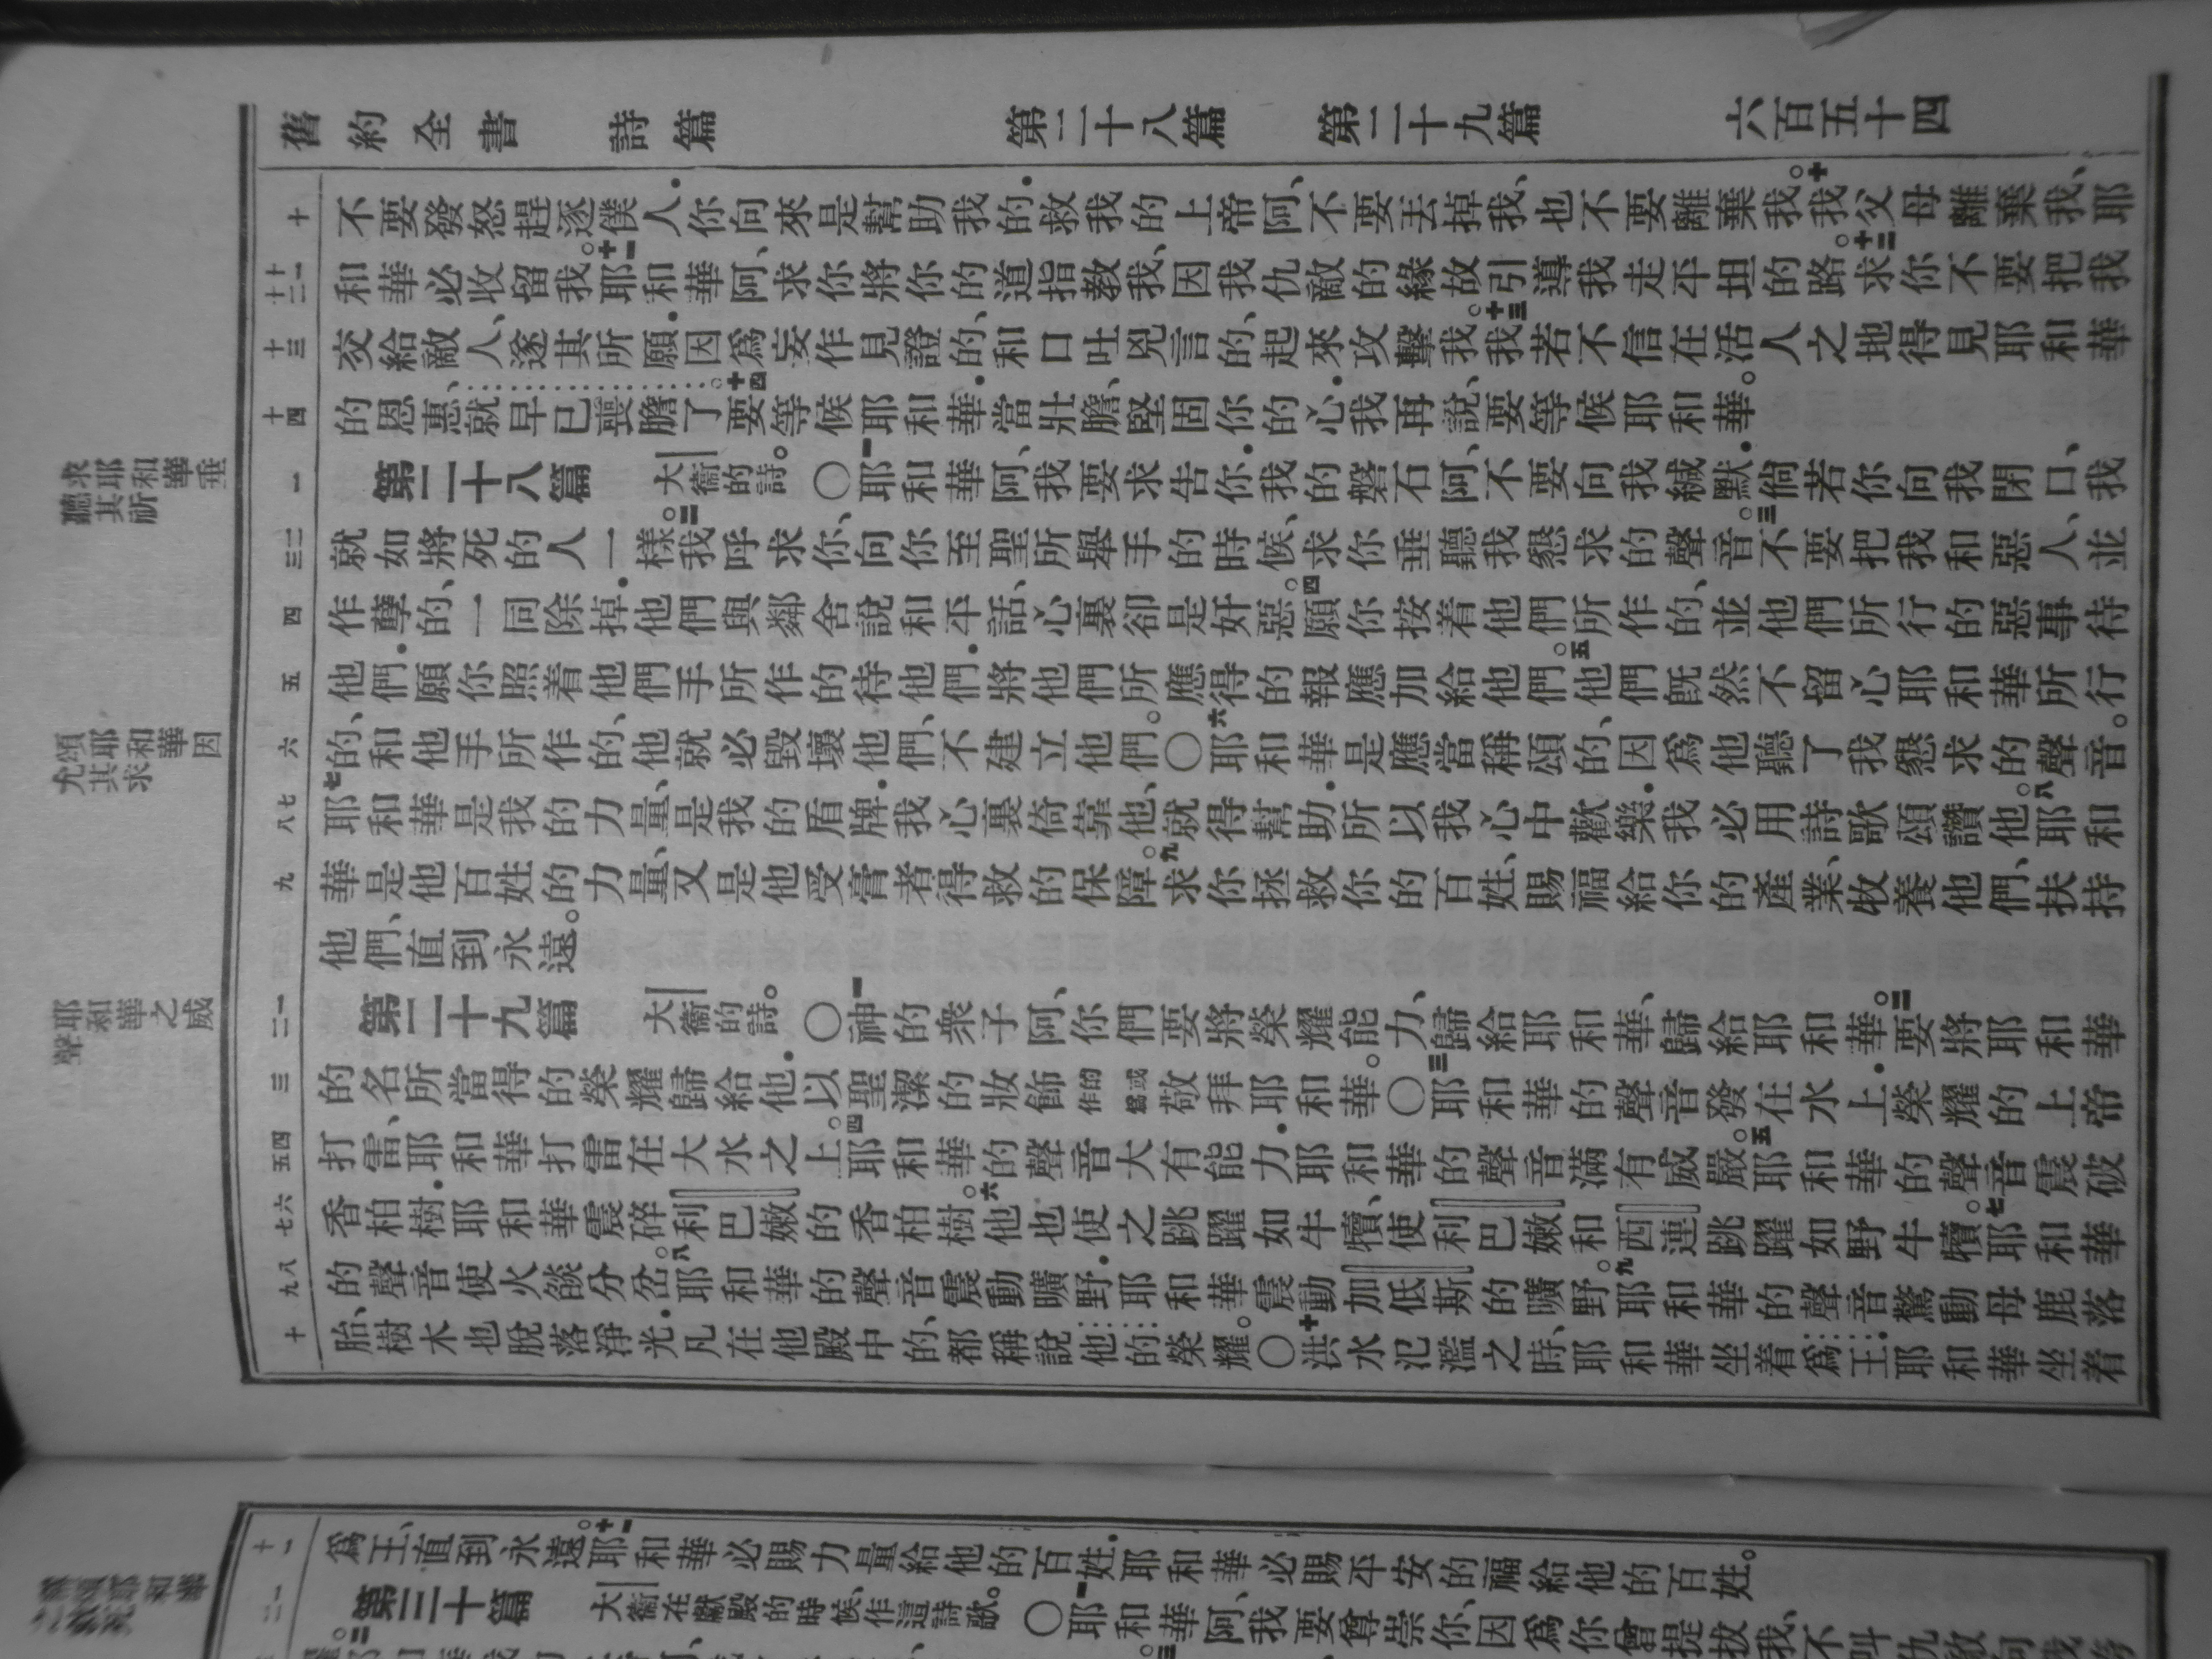 舊約全書 詩篇 第二十八篇 第二十九篇 六百五十四
十 不要發怒趕逐僕人．你向來是幫助我的．救我的上帝阿、不要丟掉我、也不要離棄我。十我父母離棄我、耶
十一 十二 和華必收留我。十一耶和華阿、求你將你的道指教我、因我仇敵的緣故引導我走平坦的路。十二求你不要把我
十三 交給敵人、遂其所願．因爲妄作見證的、和口吐兇言的、起來攻擊我。十三我若不信在活人之地得見耶和華
十四 的恩惠、就早已喪膽了。十四要等候耶和華．當壯膽、堅固你的心．我再說、要等候耶和華。
求耶和華垂聽其祈
一 第二十八篇 大衞的詩。〇一耶和華阿、我要求告你．我的磐石阿、不要向我緘默．倘若你向我閉口、我
二 三 就如將死的人一樣。二我呼求你、向你至聖所舉手的時候、求你垂聽我懇求的聲音。三不要把我和惡人、並
四 作孽的、一同除掉．他們與鄰舍說和平話、心裏卻是奸惡。四願你按着他們所作的、並他們所行的惡事待
五 他們．願你照着他們手所作的待他們．將他們所應得的報應加給他們。五他們既然不留心耶和華所行
頌耶和華因允其求
六 的、和他手所作的、他就必毀壞他們、不建立他們。〇六耶和華是應當稱頌的、因爲他聽了我懇求的聲音。
七 八 七耶和華是我的力量、是我的盾牌．我心裏倚靠他、就得幫助．所以我心中歡樂．我必用詩歌頌讚他。八耶和
九 華是他百姓的力量、又是他受膏者得救的保障。九求你拯救你的百姓、賜福給你的產業、牧養他們、扶持
他們、直到永遠。
耶和華之威聲
一 二 第二十九篇 大衞的詩。〇一神的衆子阿、你們要將榮耀能力、歸給耶和華、歸給耶和華。二要將耶和華
三 的名所當得的榮耀歸給他．以聖潔的妝飾 的或作爲 敬拜耶和華。〇三耶和華的聲音發在水上．榮耀的上帝
四 五 打雷、耶和華打雷在大水之上。四耶和華的聲音大有能力．耶和華的聲音滿有威嚴。五耶和華的聲音震破
六 七 香柏樹．耶和華震碎利巴嫩的香柏樹。六他也使之跳躍如牛犢、使利巴嫩和西連跳躍如野牛犢。七耶和華
八 九 的聲音使火燄分岔。八耶和華的聲音震動曠野．耶和華震動加低斯的曠野。九耶和華的聲音驚動母鹿落
十 胎、樹木也脫落淨光．凡在他殿中的、都稱說他的榮耀。〇十洪水氾濫之時、耶和華坐着爲王．耶和華坐着
十一 爲王、直到永遠。十一耶和華必賜力量給他的百姓．耶和華必賜平安的福給他的百姓。
一 二 第三十篇 大衞在獻殿的時候、作這詩歌。〇一耶和華阿、我要尊崇你、因爲你曾提拔我、不叫仇敵向我